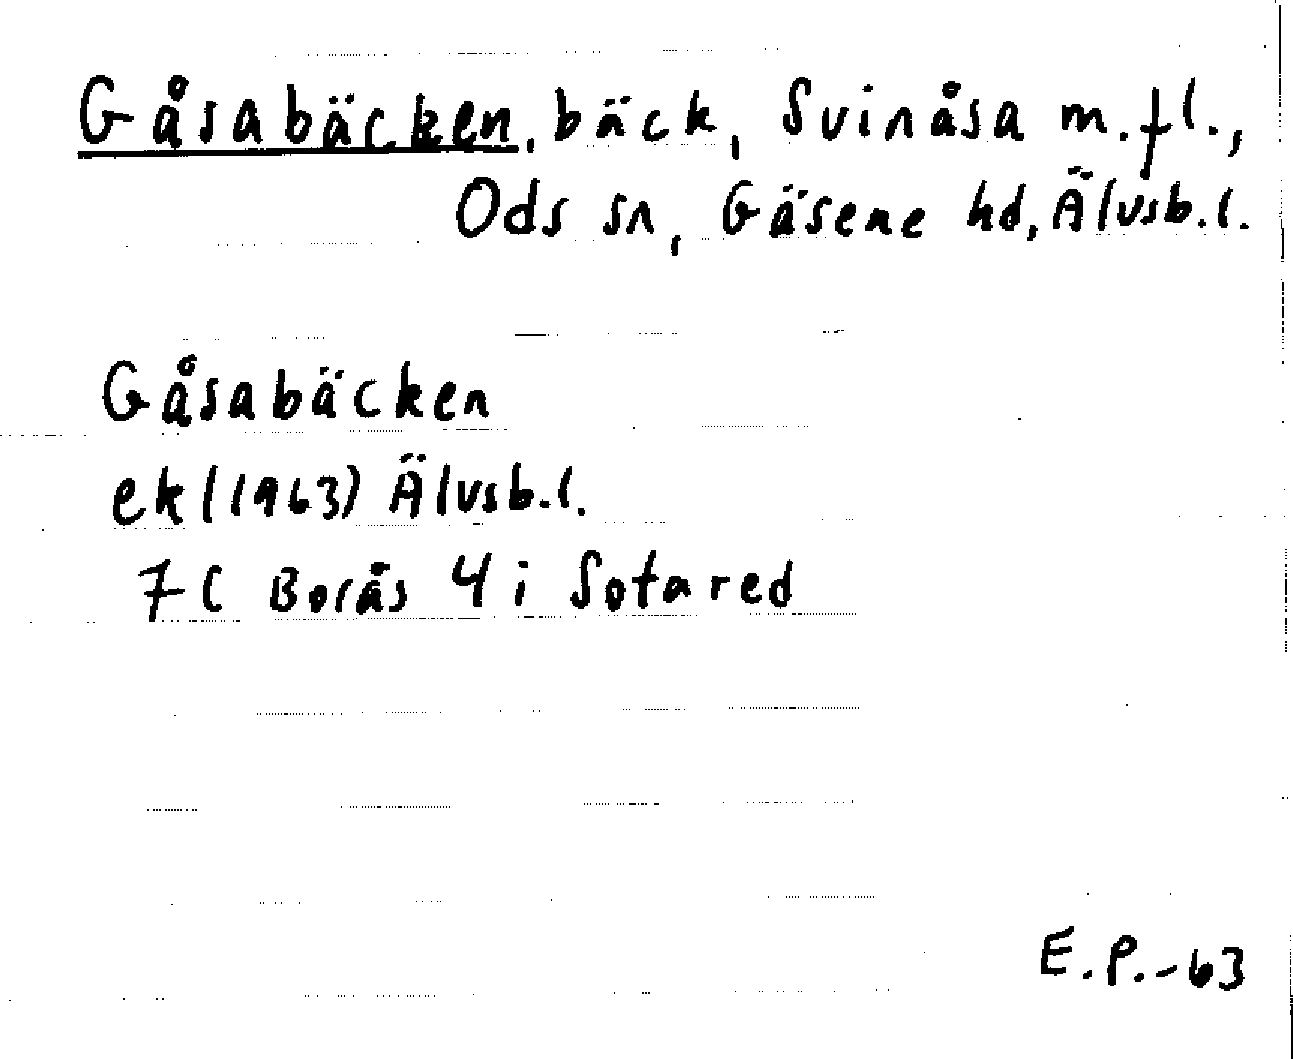 Gåsabäcken, bäck, Svinåsa m.fl.,
Ods sn, Gäsene hd, Älvsb.l.
Gåsabäcken
ek (1963) Älvsb.l.
7C Borås 4 i Sotared
E.P.-63